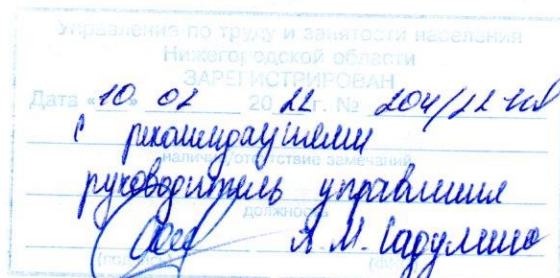 Управление по труду и занятости населения
Нижегородской области
ЗАРЕГИСТРИРОВАН
Дата «10» 02 2022 г. № 204/22
с рекомендациями
наличие/отсутствие замечаний
руководитель управления
должность
А.М.